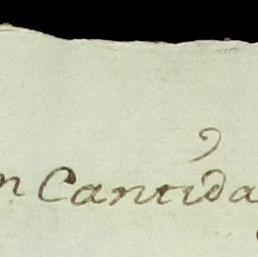 n Cantida